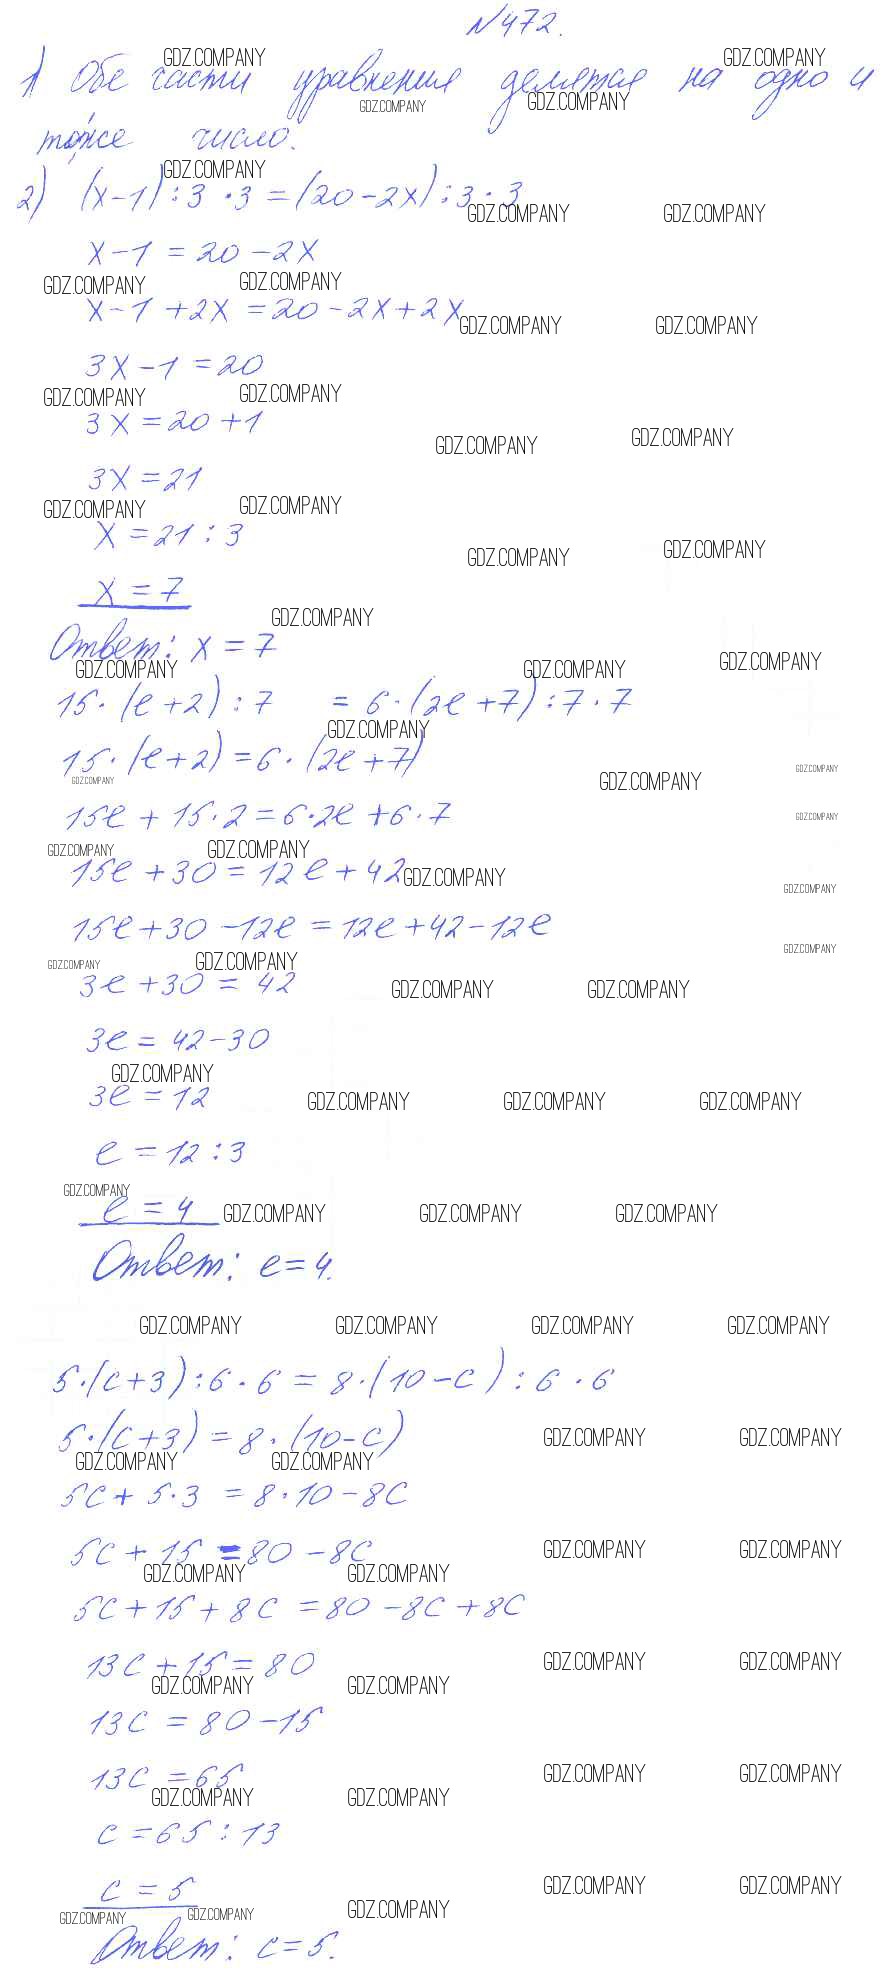 №472.
1) Обе части уравнения делятся на одно и
тоже число.
2) (x-1):3·3=(20-2x):3·3
x-1=20-2x
x-1+2x=20-2x+2x
3x-1=20
3x=20+1
3x=21
x=21:3
x=7
Ответ: x=7
15·(е+2):7 =6·(2е+7):7·7
15·(е+2)=6·(2е+7)
15е+15·2=6·2е+6·7
15е+30=12е+42
15е+30-12е=12е+42-12е
3е+30=42
3е=42-30
3е=12
е=12:3
е=4
Ответ: е=4.
5·(с+3):6·6=8·(10-с):6·6
5·(с+3)=8·(10-с)
5с+5·3=8·10-8с
5с+15=80-8с
5с+15+8с=80-8с+8с
13с+15=80
13с=80-15
13с=65
с=65:13
с=5
Ответ: с=5.
GDZ.COMPANY